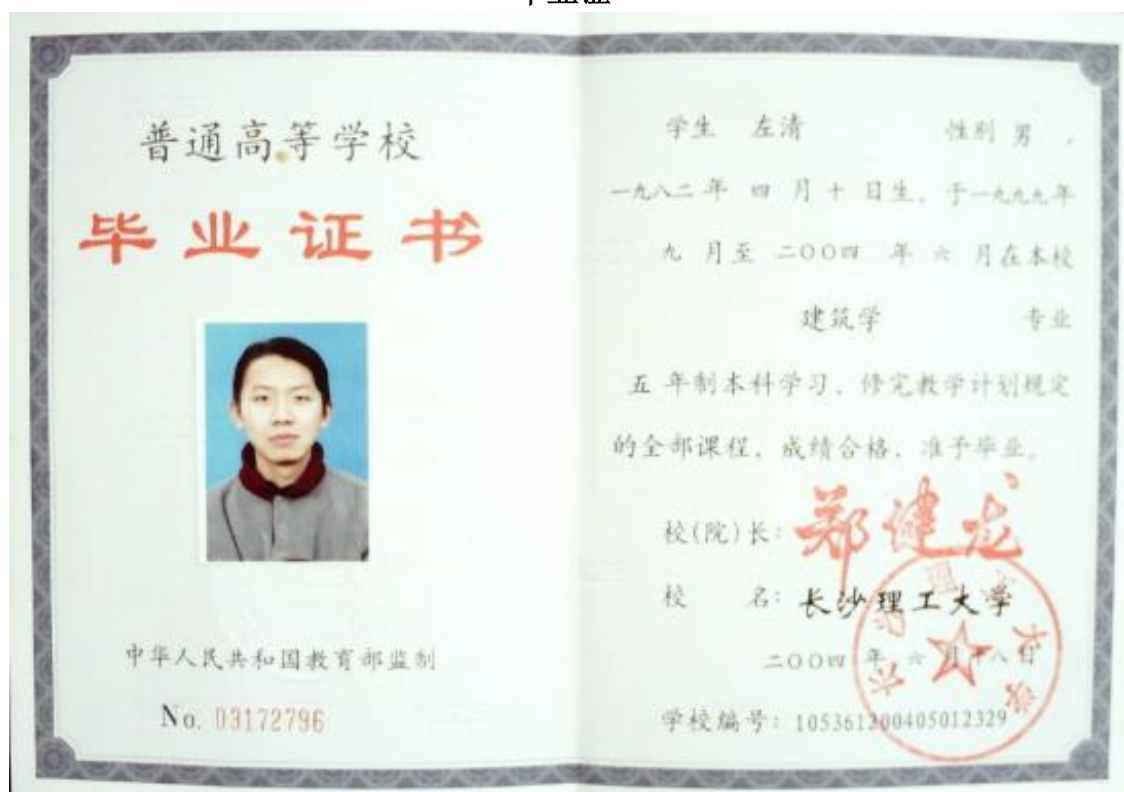 毕业证
普通高等学校
毕业证书
中华人民共和国教育部监制
No. 03172796
学生 左清 性别 男 ，
一九八二年 四 月 十 日生，于一九九九年
九 月至 二〇〇四 年 六 月在本校
建筑学 专业
五 年制本科学习，修完教学计划规定
的全部课程，成绩合格，准予毕业。
校(院)长：郑健龙
校 名：长沙理工大学
二〇〇四 年 六 月十八日
学校编号：105361200405012329